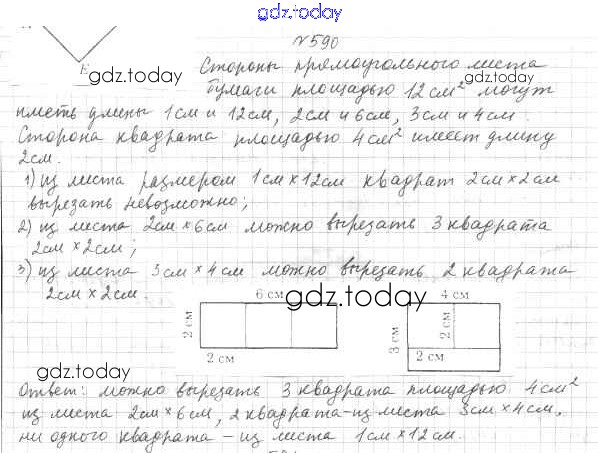 gdz.today
№590
Е
Стороны прямоугольного листа
gdz.today
gdz.today
бумаги площадью 12 см² могут
иметь длины 1 см и 12 см, 2 см и 6 см, 3 см и 4 см.
Сторона квадрата площадью 4 см² имеет длину
2 см.
1) из листа размером 1 см × 12 см квадрат 2 см × 2 см
вырезать невозможно;
2) из листа 2 см × 6 см можно вырезать 3 квадрата
2 см × 2 см;
3) из листа 3 см × 4 см можно вырезать 2 квадрата
2 см × 2 см.
6 см
gdz.today
4 см
2 см
3 см
2 см
2 см
gdz.today
Ответ: можно вырезать 3 квадрата площадью 4 см²
из листа 2 см × 6 см, 2 квадрата - из листа 3 см × 4 см,
ни одного квадрата - из листа 1 см × 12 см.